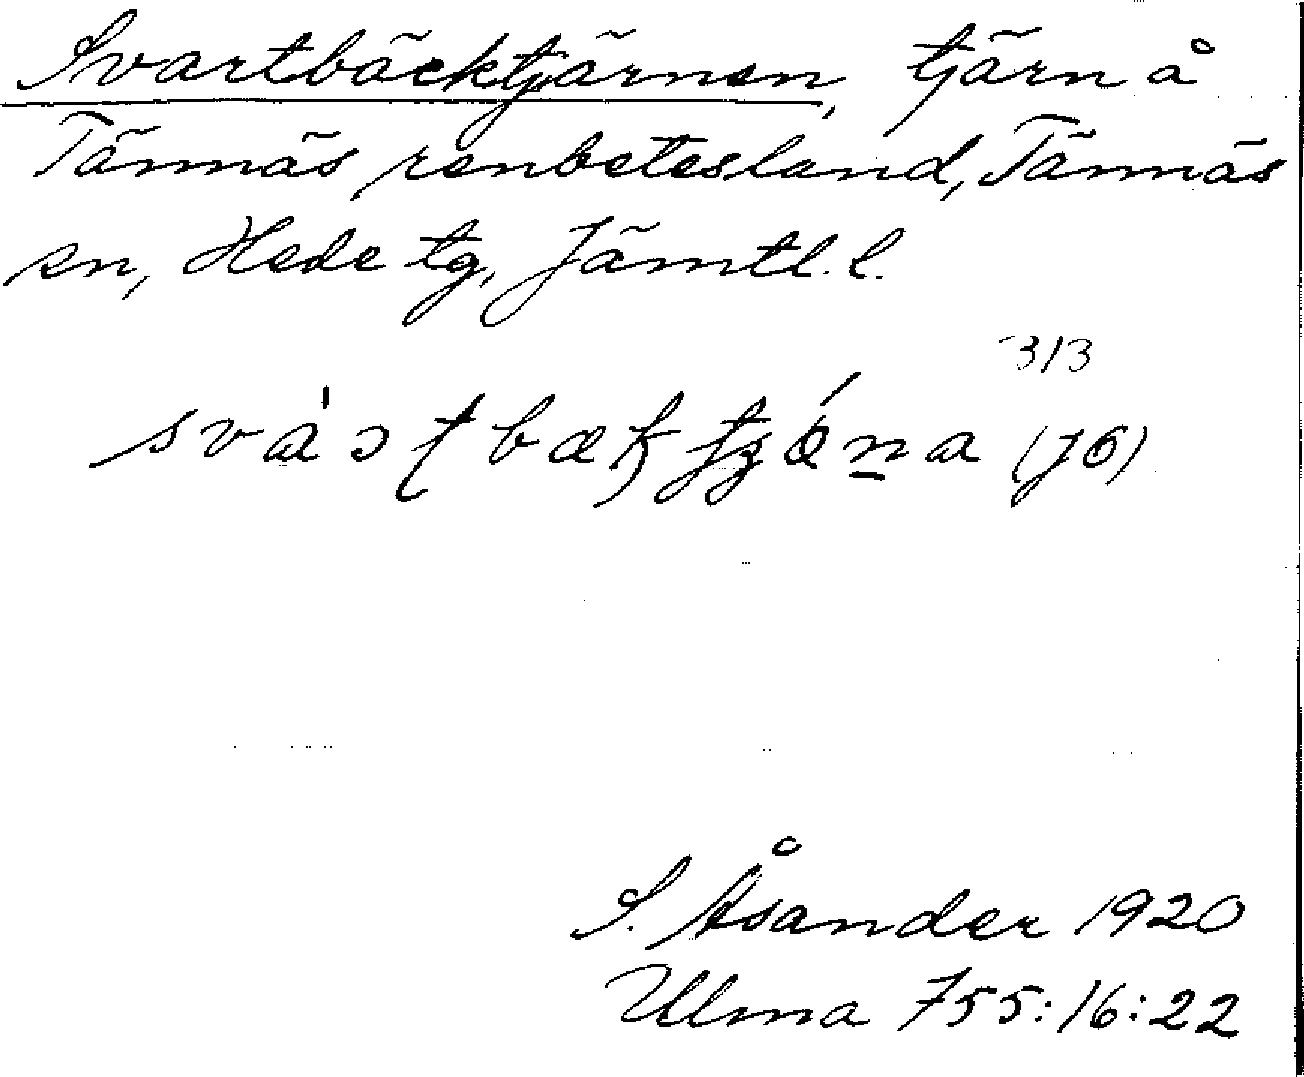 Svartbäcktjärnen, tjärn å
Tännäs renbetesland, Tännäs
sn, Hede tg, Jämtl. l.
313
(jö)
S. Åsander 1920
Ulma 755:16:22